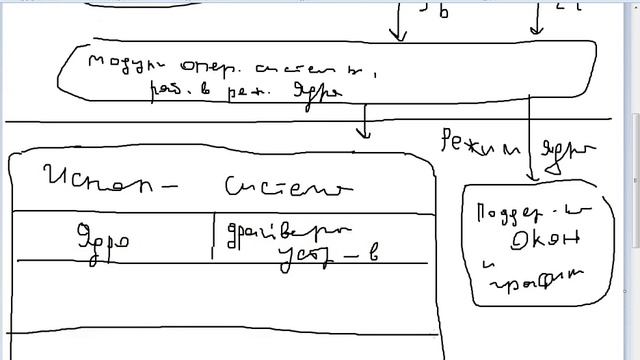 модули опер. системы,
раб. в реж. Ядра
Режим Ядра
Испол – система
Ядро
драйверы
устр – в
Поддер-ка
Окон
и
график